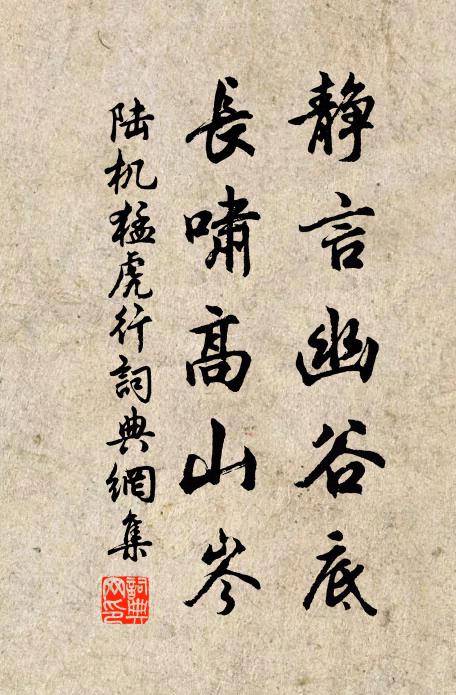 静言幽谷底
長嘯高山岑
陆机猛虎行詞典網集
詞典网印